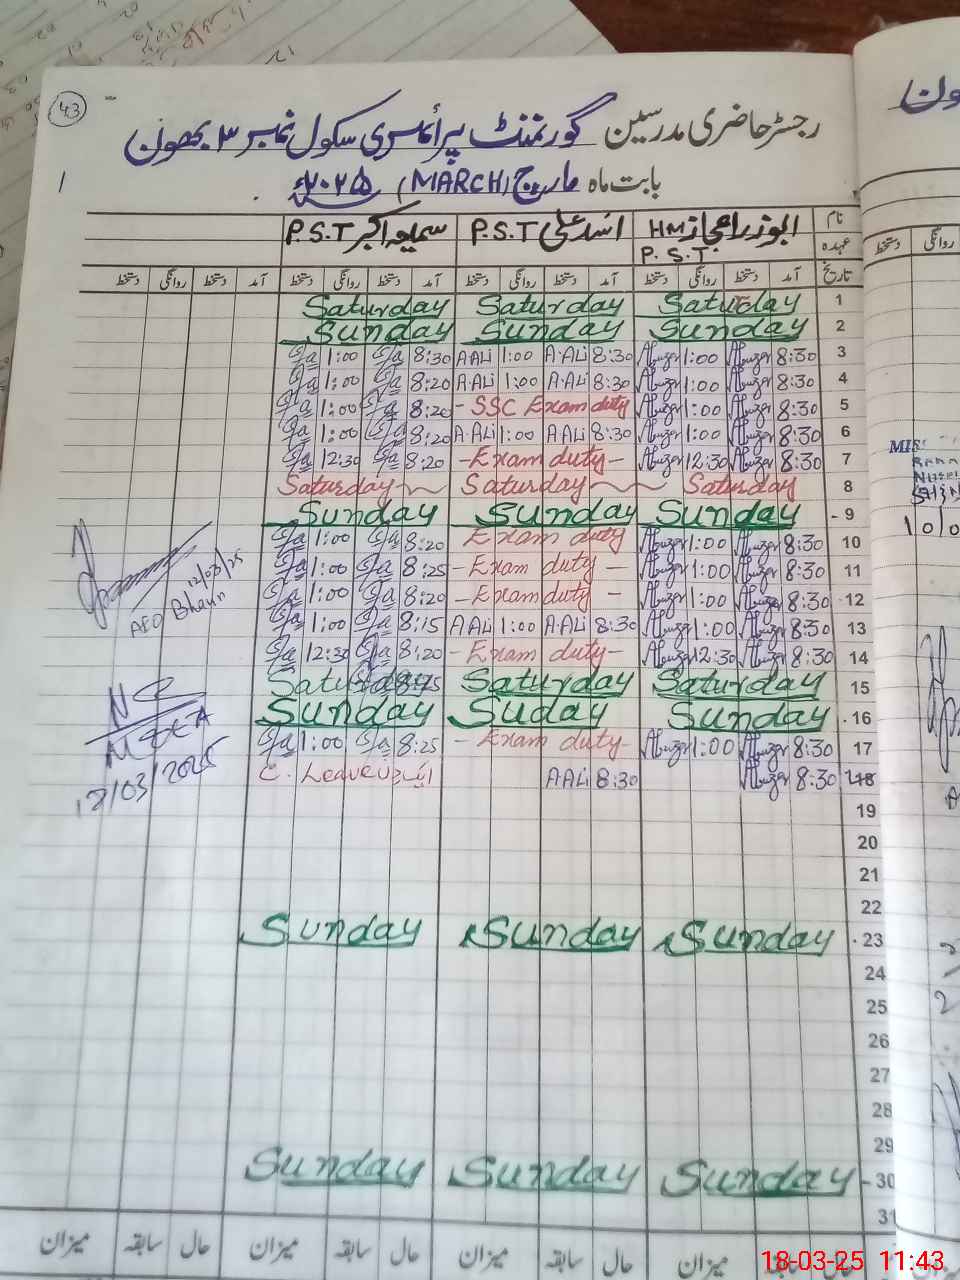 43
رجسٹر حاضری مدرسین گورنمنٹ پرائمری سکول نمبر ۳ بھون
بابت ماہ مارچ (MARCH) ۲۰۲۵ء
نام ابوذر اعجاز HM اسد علی P.S.T سمیعہ اکبر P.S.T
عہدہ P.S.T
تاریخ آمد دستخط روانگی دستخط آمد دستخط روانگی دستخط آمد دستخط روانگی دستخط آمد دستخط روانگی دستخط
1 Saturday Saturday Saturday
2 Sunday Sunday Sunday
3 8:30 Abuzar 1:00 Abuzar 8:30 A.ALi 1:00 A ALi 8:30 1:00
4 8:30 Abuzar 1:00 Abuzar 8:30 A.ALi 1:00 A.ALi 8:20 1:00
5 8:30 Abuzar 1:00 Abuzar - SSC Exam duty 8:20 1:00
6 8:30 Abuzar 1:00 Abuzar 8:30 A.ALi 1:00 A.ALi 8:20 1:00
7 8:30 Abuzar 12:30 Abuzar - Exam duty - 8:20 12:30
8 Saturday Saturday Saturday
9 Sunday Sunday Sunday
10 8:30 Abuzar 1:00 Abuzar Exam duty 8:20 1:00
11 8:30 Abuzar 1:00 Abuzar - Exam duty - 8:25 1:00
12 8:30 Abuzar 1:00 Abuzar - Exam duty - 8:20 1:00
13 8:30 Abuzar 1:00 Abuzar 8:30 A ALi 1:00 A ALi 8:15 1:00
14 8:30 Abuzar 12:30 Abuzar - Exam duty - 8:20 12:30
15 Saturday Saturday Saturday
16 Sunday Suday Sunday
17 8:30 Abuzar 1:00 Abuzar - Exam duty - 8:25 1:00
18 8:30 Abuzar 8:30 A ALi C. Leave
19
20
21
22
23 Sunday Sunday Sunday
24
25
26
27
28
29
30 Sunday Sunday Sunday
31
حال سابقہ میزان حال سابقہ میزان حال سابقہ میزان
12/03/25
AEO Bhaun
MEA
12/03/2025
روانگی دستخط
MIS
18-03-25 11:43